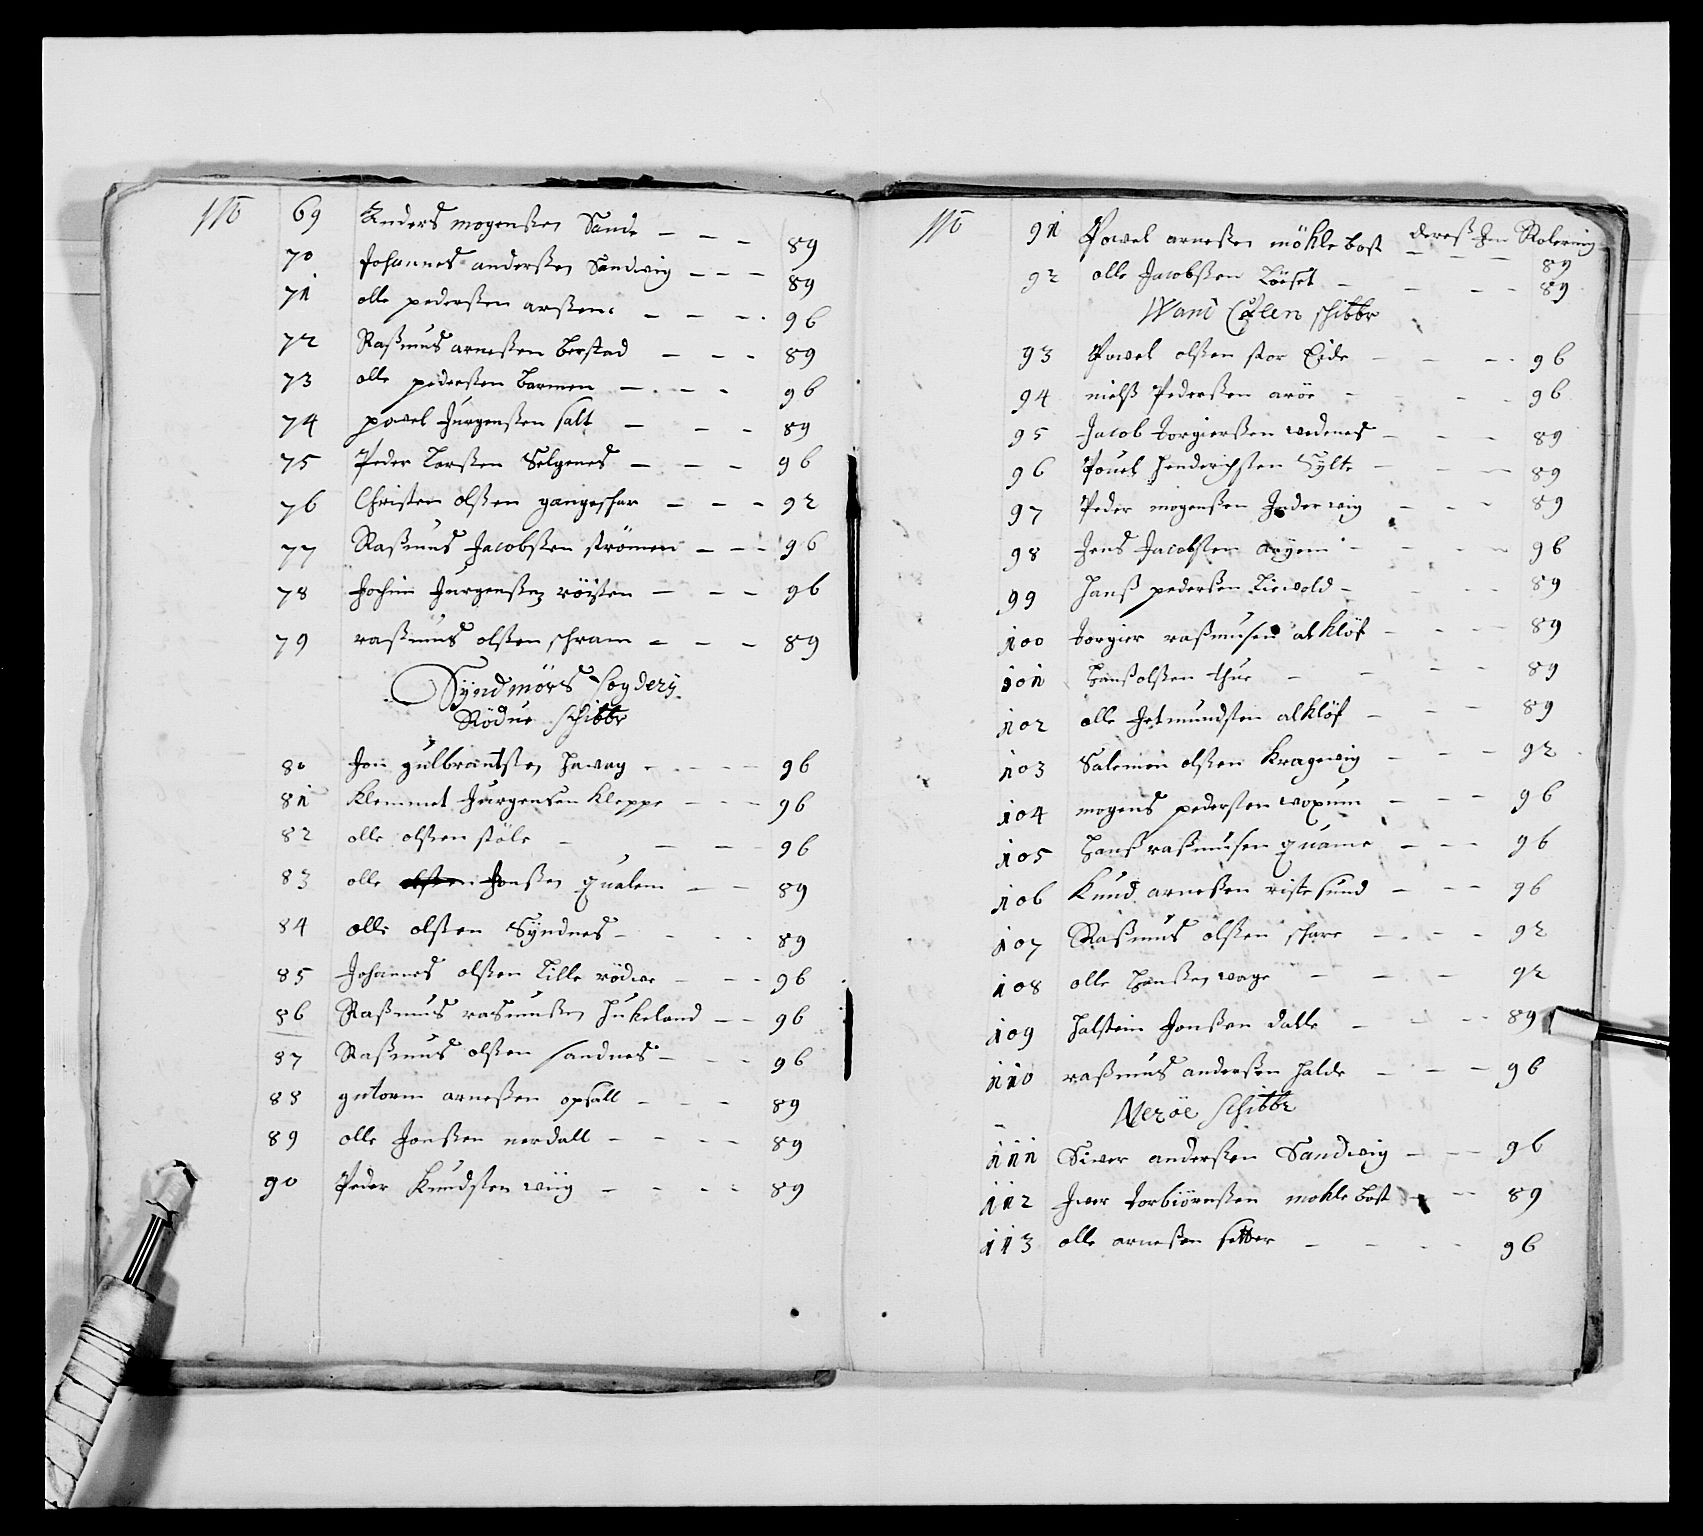 No 69 Anders mogenßen Sande - - - 89
70 Johannes anderßen Sandwig - - - 89
71 olle pederßen arßene - - - 96
72 Raßmus arneßen berstad - - - 89
73 olle pederßen barmen - - - 96
74 powel Jurgenßen salt - - - 89
75 Peder Larßen Selgenes - - - 96
76 Christen olßen gangeschar - - - 92
77 Raßmus Jacobßen strömen - - - 96
78 Jochim Jurgenßen röisten - - - 96
79 raßmus olßen schram - - - 89
Syndmörs fogderj
Rödue schibbr
80 Jon gulbrantßen hawag - - - 96
81 Klemmet Jurgensen Kleppe - - - 96
82 olle olßen stöle - - - 96
83 olle Jonßen qualem - - 89
84 olle olßen Syndnes - - - 89
85 Johannes olßen Lille rödue - - - 96
86 Raßmus rasmußen hukeland - - 96
87 Raßmus olßen sandnes - - - 96
88 gutorm arneßen opsall - - - 89
89 olle Jonßen nordall - - - 89
90 Peder Knudßen wiig - - - 89
No 91 Powel arneßen möhlebost - - - 89
dereß Jen Rolering
92 olle Jacobßen Löeset - - - 89
Wand Eluen schibbr
93 Powel olßen stor Eide - - - 96
94 nielß Pederßen aröe - - - 96
95 Jacob torgierßen wednes - - - 89
96 Pouel hendrichßen Sylte - - - 89
97 Peder mogenßen Inderwig - - - 89
98 Jens Jacobßen - - - 96
99 Hanß pederßen Liewold - - - 89
100 torgier raßmusen alklöf - - - 89
101 Hanß olßen thue - - - 89
102 olle Jetmundsten alklöf - - - 89
103 Salemon olßen Kragewig - - - 92
104 mogens pederßen woxum - - - 96
105 Hanß raßmusen quame - - - 96
106 Knud arneßen ristesund - - - 96
107 Raßmus olßen schare - - - 92
108 olle Hanßen wage - - - 92
109 halstein Jonßen dalle - - - 89
110 raßmus anderßen halde - - - 96
Neröe schibbr
111 Siwer anderßen Sandwig - - - 96
112 Jwer torbiörnßen mohlebost - - 89
113 olle arneßen setter - - - 96